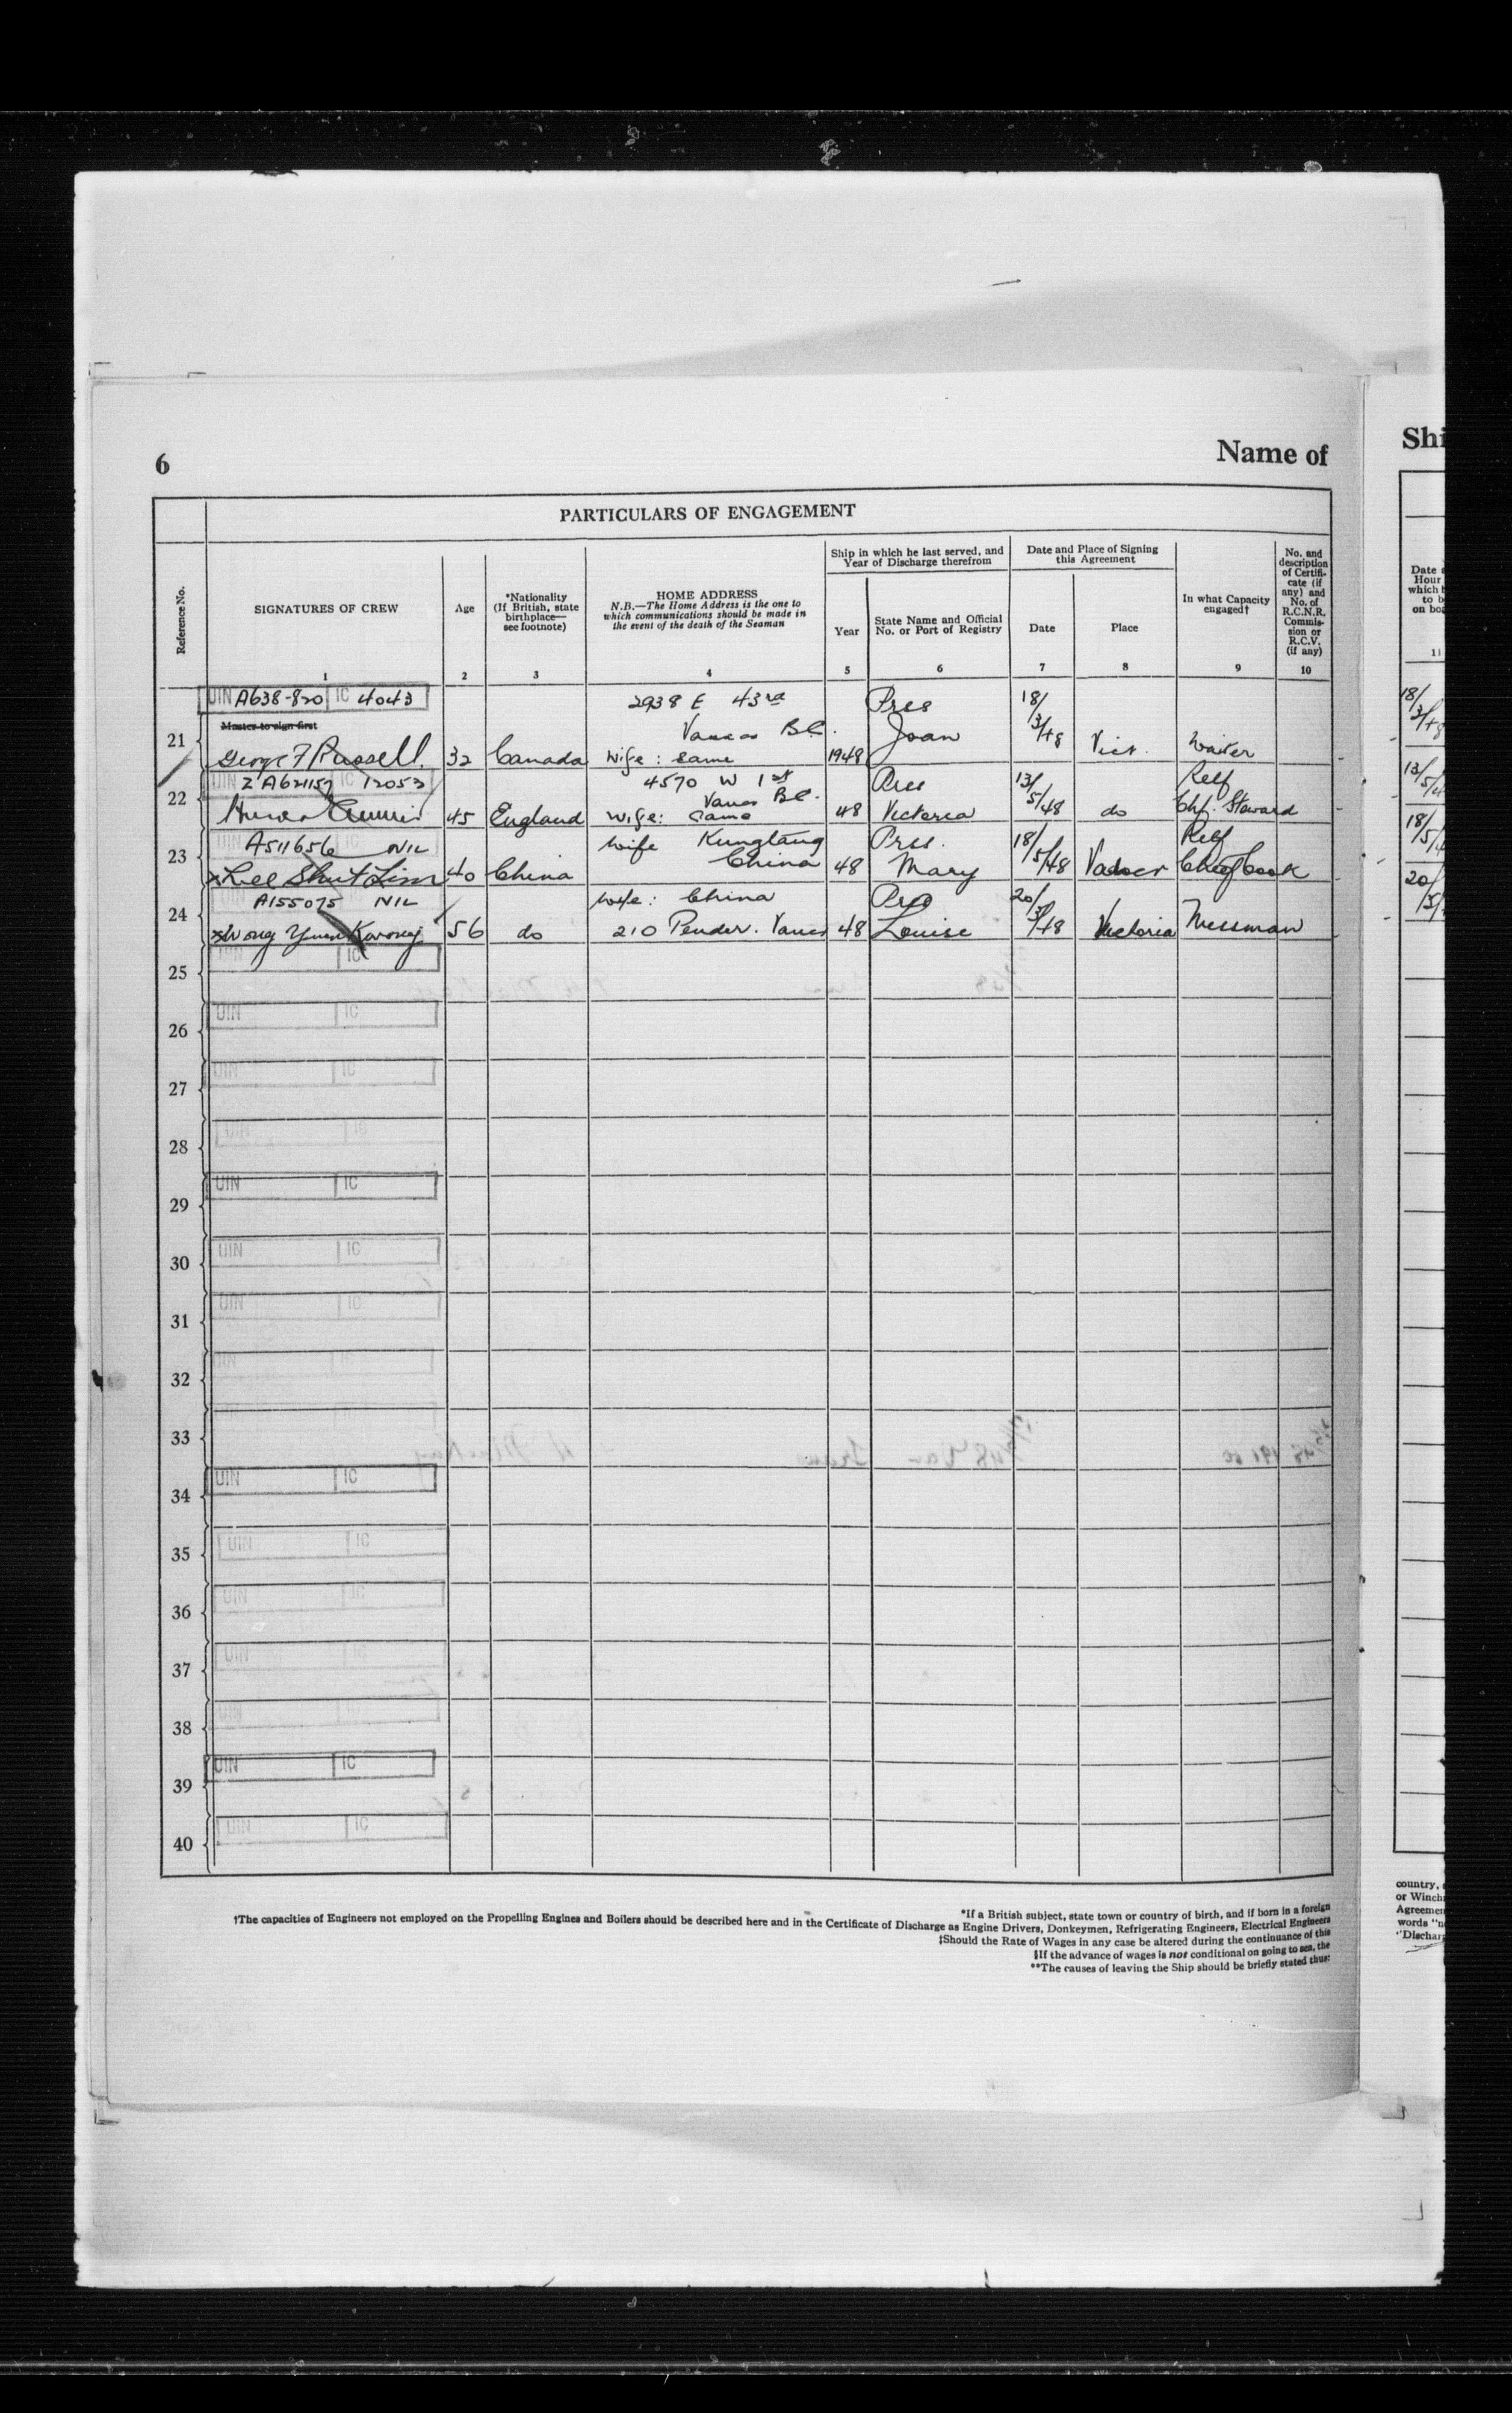 6
Name of
Shi
PARTICULARS OF ENGAGEMENT
Reference No.
SIGNATURES OF CREW
1
Age
2
*Nationality
(If British, state
birthplace—
see footnote)
3
HOME ADDRESS
N.B.—The Home Address is the one to
which communications should be made in
the event of the death of the Seaman
4
Ship in which he last served, and
Year of Discharge therefrom
Year
5
State Name and Official
No. or Port of Registry
6
Date and Place of Signing
this Agreement
Date
7
Place
8
In what Capacity
engaged†
9
No. and
description
of Certifi-
cate (if
any) and
No. of
R.C.N.R.
Commis-
sion or
R.C.V.
(if any)
10
Date
Hour
which
to b
on boa
11
UIN A638-820 IC 4043
2938 E 43rd
Pres
18/
Master to sign first
B.C.
Joan
3/48
21 George F Russell. 32 Canada Wife: same 1948 Vict. Waiter
UIN Z A621157 IC 12053
4570 W 1st
Pres
13/
Relf
22 45 England Vanc B.C.
Wife: Same 48 Victoria 5/48 do Chf. Steward
A511656 NIL
wife Kungtang
Pres.
18/
Relf
23 x Lee Shut Lim 40 China China 48 Mary 5/48 Chief Cook
A155075 NIL
wife: China
20/
24 x Wong Yuen Kwong 56 do 210 Pender. Vanc 48 Louise /48 Victoria Messman
UIN IC
25
UIN IC
26
UIN IC
27
UIN IC
28
UIN IC
29
UIN IC
30
UIN IC
31
UIN IC
32
33
UIN IC
34
UIN IC
35
UIN IC
36
UIN IC
37
UIN IC
38
UIN IC
39
UIN IC
40
*If a British subject, state town or country of birth, and if born in a foreign
†The capacities of Engineers not employed on the Propelling Engines and Boilers should be described here and in the Certificate of Discharge as Engine Drivers, Donkeymen, Refrigerating Engineers, Electrical Engineers
‡Should the Rate of Wages in any case be altered during the continuance of this
§If the advance of wages is not conditional on going to sea, the
**The causes of leaving the Ship should be briefly stated thus:
country,
or Winch
Agreemen
words "n
"Dischar